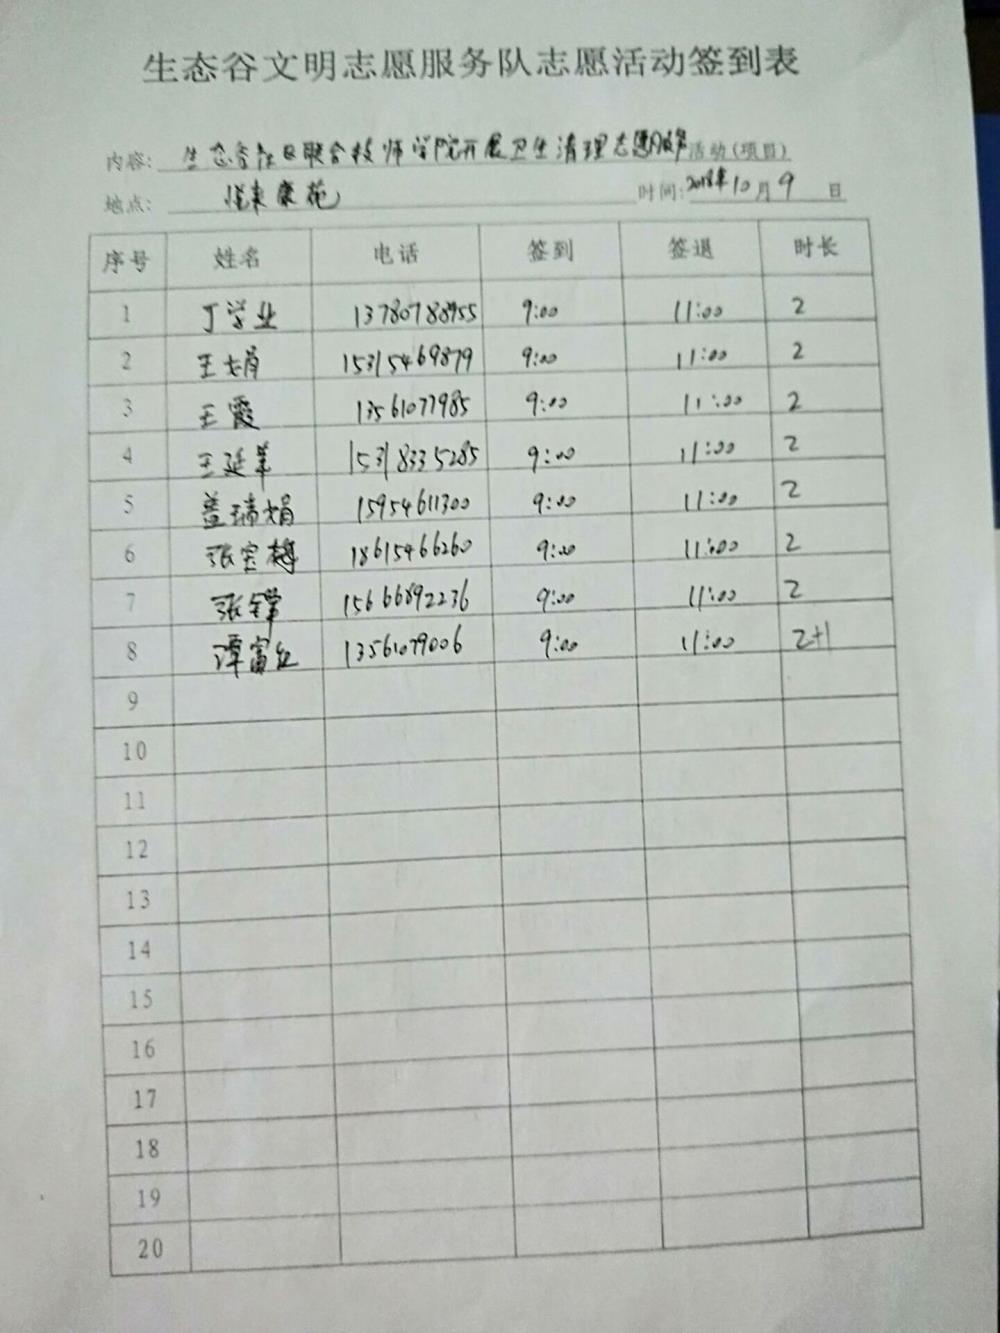 生态谷文明志愿服务队志愿活动签到表
内容: 生态谷社区联合技师学院开展卫生清理志愿服务活动(项目)
地点: 悦来康苑 时间: 2018年10月9日
序号 姓名 电话 签到 签退 时长
1 丁学业 13780788955 9:00 11:00 2
2 王娟 15315469879 9:00 11:00 2
3 王霞 13561077985 9:00 11:00 2
4 王延 15318335285 9:00 11:00 2
5 盖瑞娟 15954611300 9:00 11:00 2
6 张宝梅 18615466260 9:00 11:00 2
7 张 15666892236 9:00 11:00 2
8 谭富红 13561079006 9:00 11:00 2+1
9
10
11
12
13
14
15
16
17
18
19
20